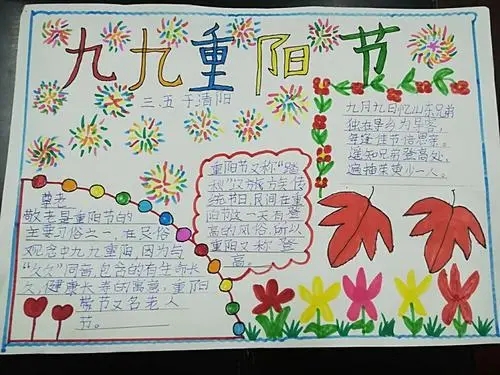 九九重阳节
三五千清阳
九月九日忆山东兄弟
独在异乡为异客，
每逢佳节倍思亲。
遥知兄弟登高处，
遍插茱萸少一人。
重阳节又称"踏
秋"汉族传
统节日，民间在重
阳节这一天有登
高的风俗，所以
重阳又称"登
高。
尊老
敬老是重阳节的
主要习俗之一，在民俗
观念中九九重阳，因为与
"久久"同音，包含的有生命长
久，健康长寿的寓意，重阳
节又名老人
节。